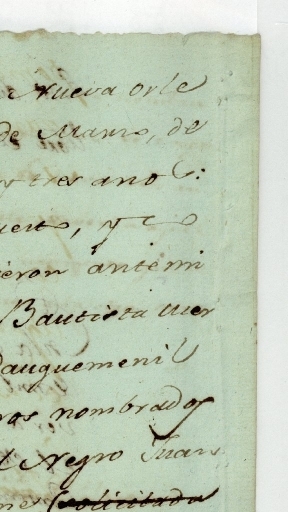 Nueva Orle
de Marzo, de
y tres anos:
uesto, y
ieron antemi
Bautista Mer
Dauquemenil
ros nombrados
l Negro Juan
nes (solicitada